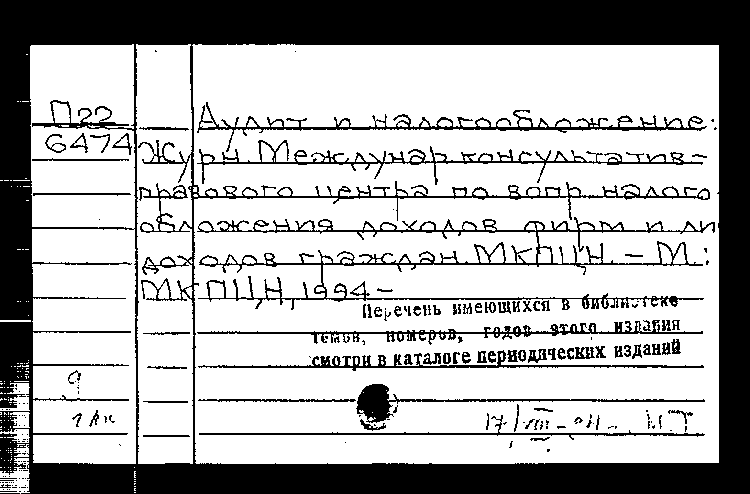 П22
6474
Аудит и налогообложение:
Журн. Междунар. консультатив-
правового центра по вопр. налого
обложения доходов фирм и ли
доходов граждан. МКПЦН. – М.:
МКПЦН, 1994 –
Перечень имеющихся в библиотеке
томов, номеров, годов этого издания
смотри в каталоге периодических изданий
9
17/VIII – 94